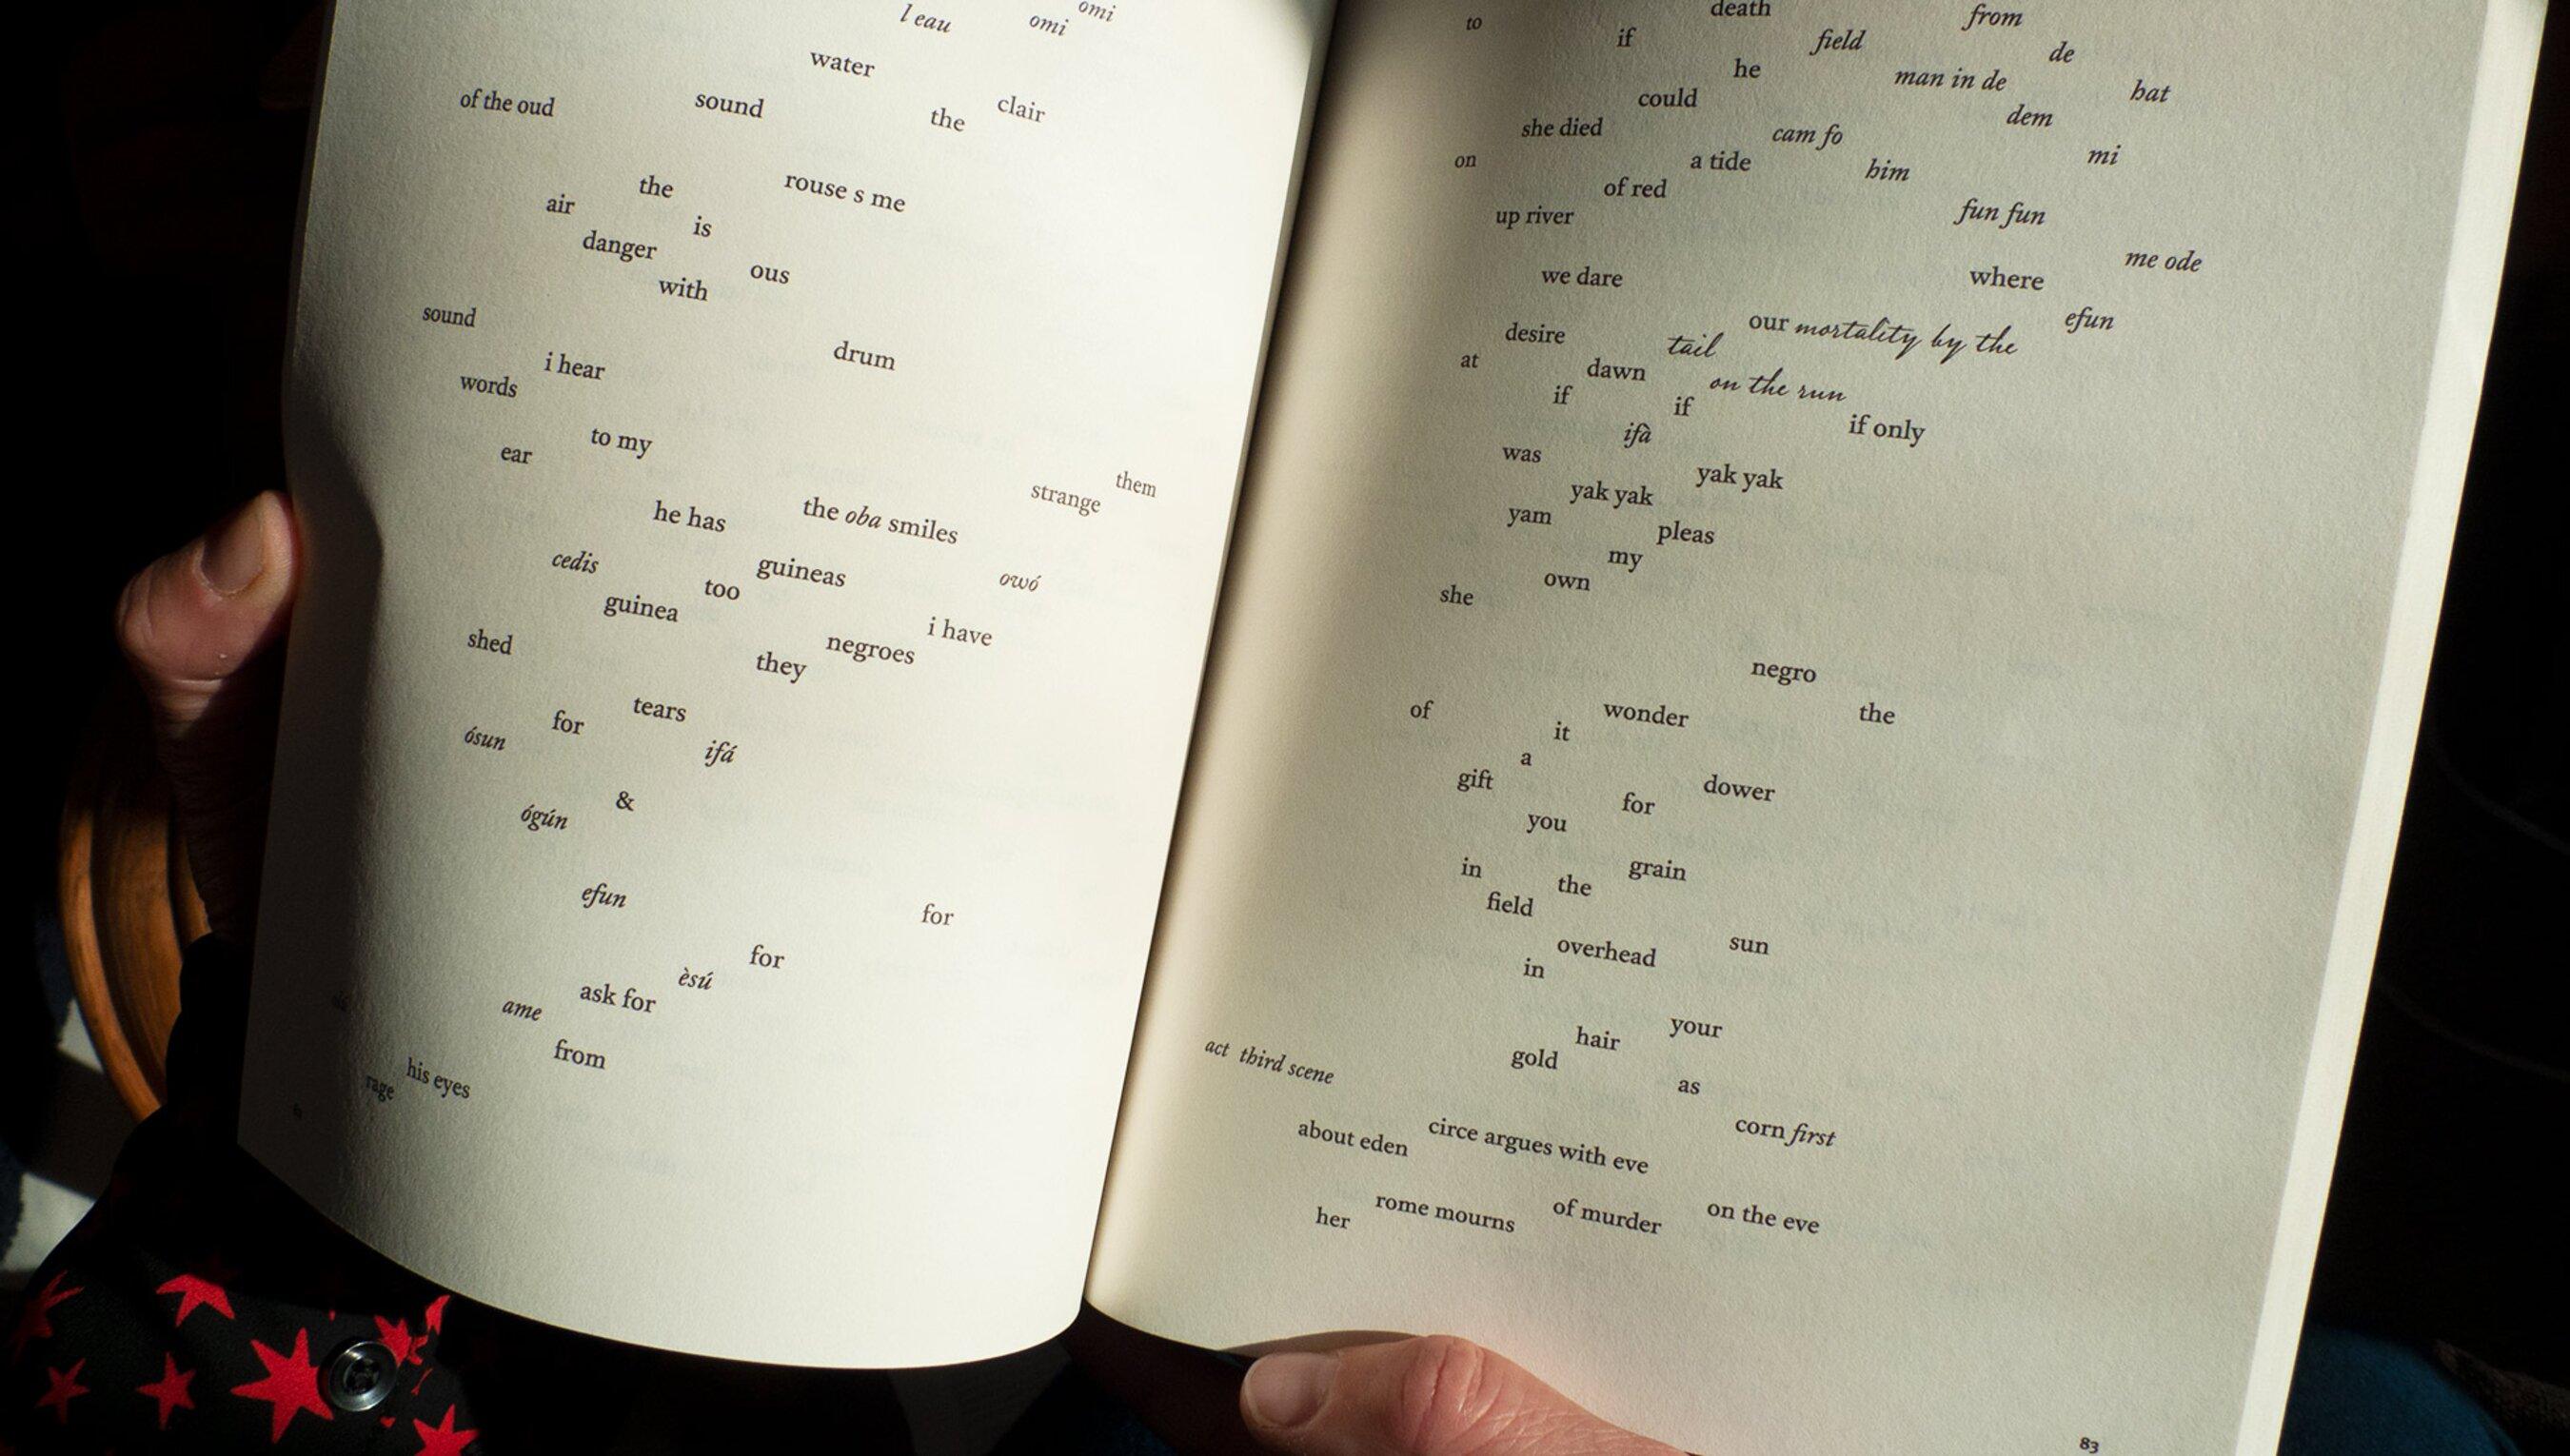 omi
l eau omi
water
clair
of the oud sound the
rouse s me
the
air is
danger ous
with
sound
drum
i hear
words
to my
ear
them
strange
he has the oba smiles
cedis guineas owó
guinea too
i have
shed negroes
they
for tears
ósun ifá
&
ógún
efun for
for
ask for èsú
ame
from
rage his eyes
death from
to if field de
he man in de bat
could dem
she died cam fo mi
on a tide him
of red
up river fun fun
me ode
we dare where
our mortality by the efun
desire tail
at dawn on the run
if if if only
ifà
was yak yak
yak yak
yam pleas
my
own
she
negro
of wonder the
it
a
gift for dower
you
in the grain
field
overhead sun
in
your
hair
gold as
act third scene
corn first
about eden circe argues with eve
her rome mourns of murder on the eve
83